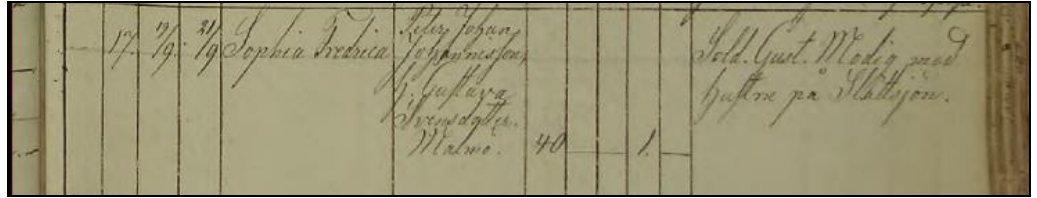 17. 19/9. 21/9 Sophia Fredrica
Peter Johan
Johannisson,
h. Gustava
Svensdotter.
Malmö. 40 1.
Sold. Gust. Modig med
hustru på Slättsjön.